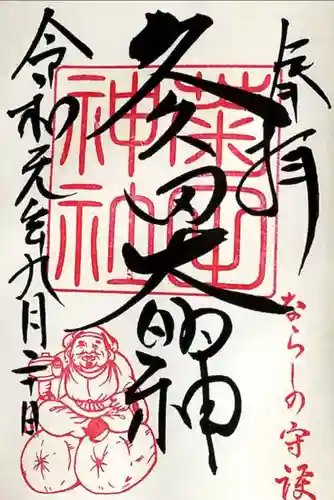 奉拝
久久田大明神
令和元年九月二十日
菊田
神社
ならしの守護